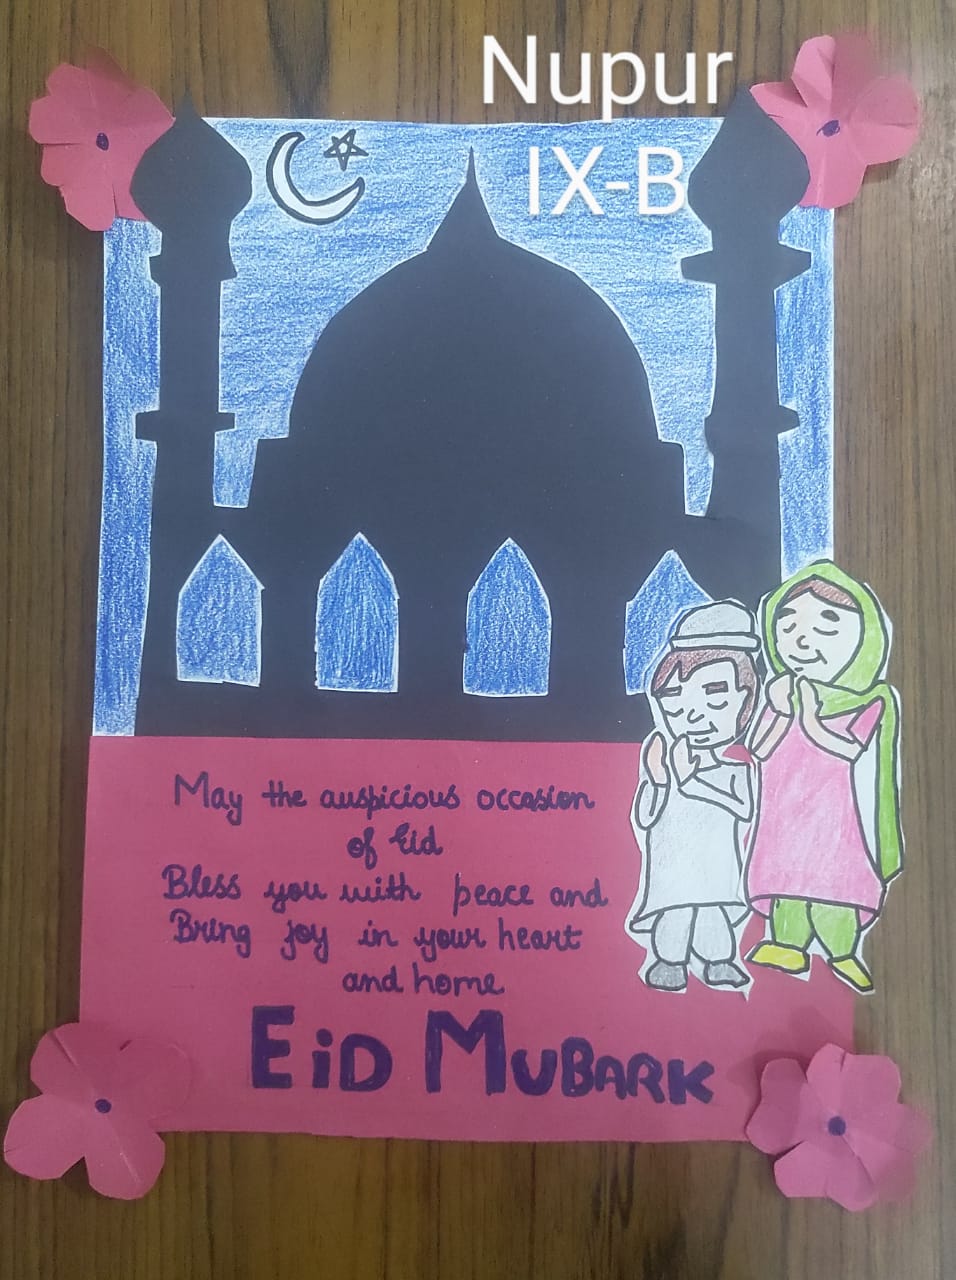 Nupur
IX-B
May the auspicious occasion
of Eid
Bless you with peace and
Bring joy in your heart
and home
EiD MUBARK